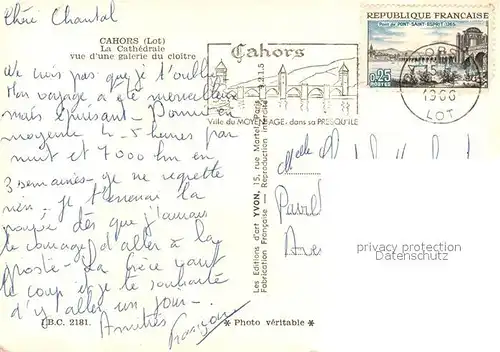 Chère Chantal
CAHORS (Lot)
La Cathédrale
vue d'une galerie du cloître
Ne crois pas que je t'oublie
Mon voyage a été merveilleux
mais épuisant - Dormir en
moyenne 4-5 heures par
nuit et 7000 km en
3 semaines - je ne regrette
rien - je t'enverrai la
poupée dès que j'aurais
le courage d'aller à la
poste - La Grèce vaut
le coup et je te souhaite
d'y aller un jour -
Amitiés
François
I.B.C. 2181.
Les Editions d'art YVON, 15, rue Martel, Paris
Fabrication Française - Reproduction interdite
* Photo véritable *
Cahors
Ville du MOYEN AGE, dans sa PRESQU'ILE
REPUBLIQUE FRANÇAISE
Pont de PONT-SAINT-ESPRIT
0,25
POSTES
CAHORS
1966
LOT
Melle
privacy protection
Datenschutz